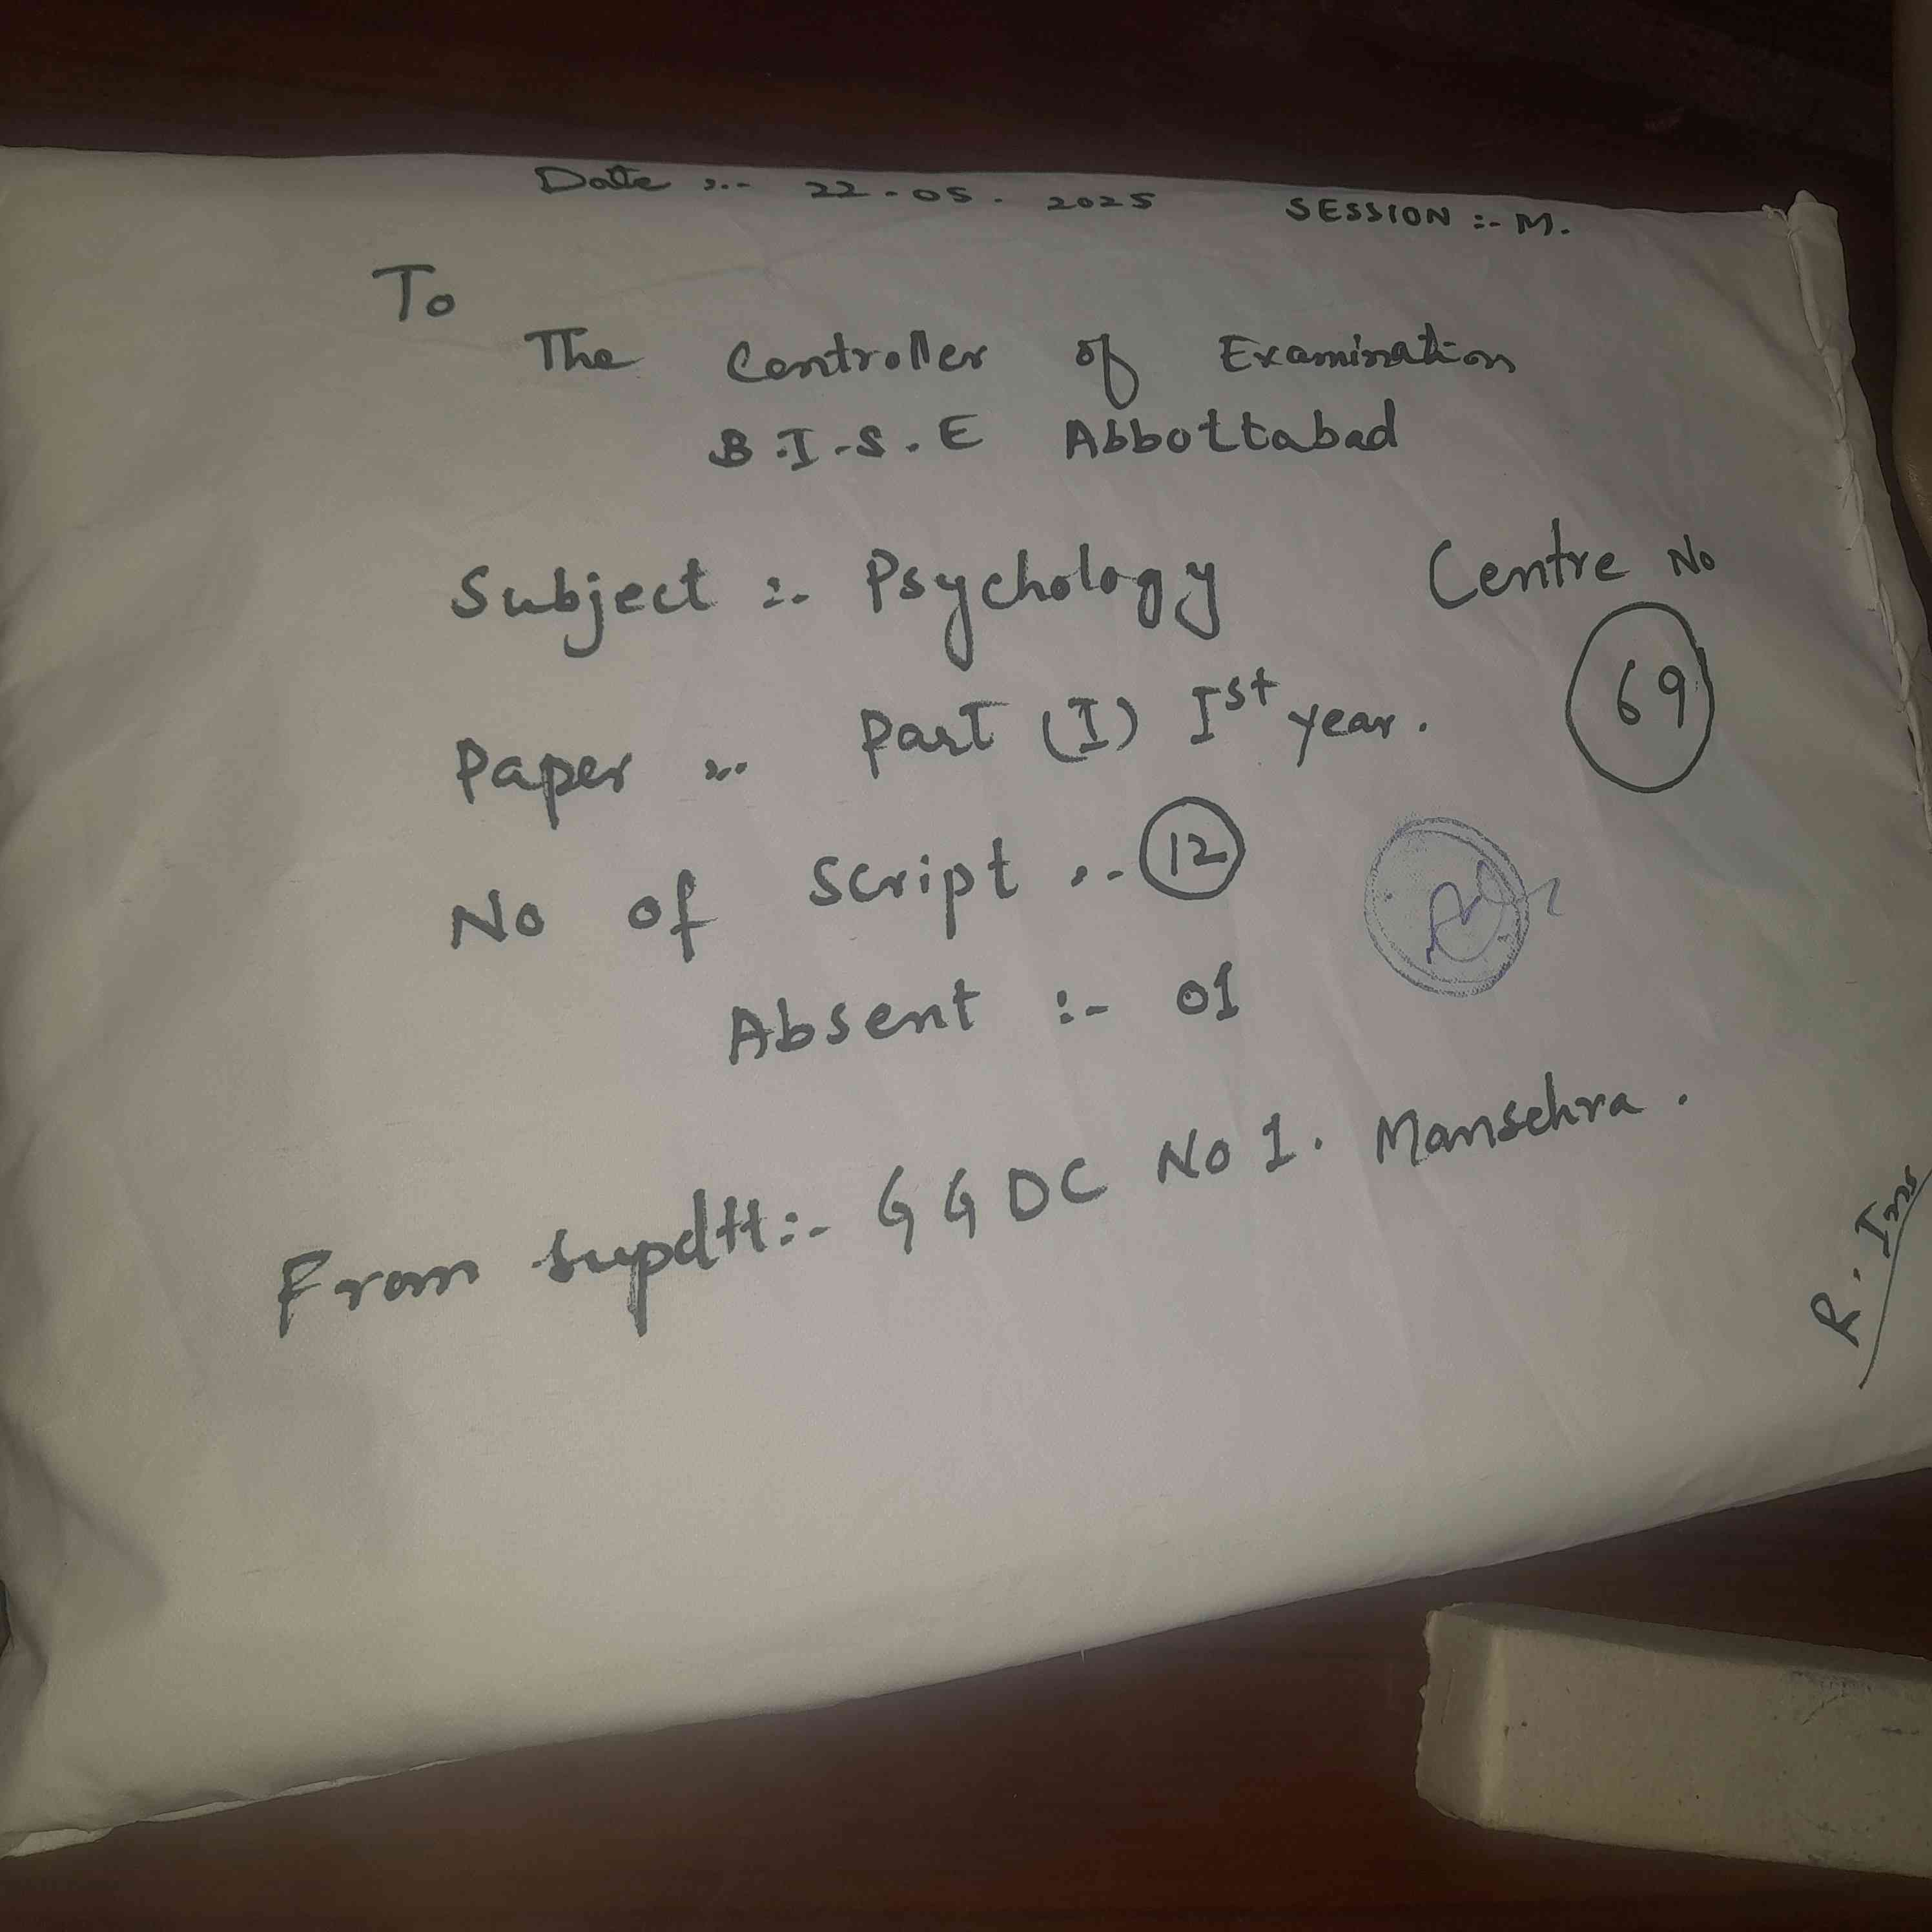 Date :- 22-05-2025 SESSION :- M.
To
The Controller of Examination
B.I.S.E Abbottabad
Subject :- Psychology Centre No
69
Paper :- Part (I) Ist year.
No of Script :- 12
Absent :- 01
From supdtt:- GGDC No 1. Mansehra.